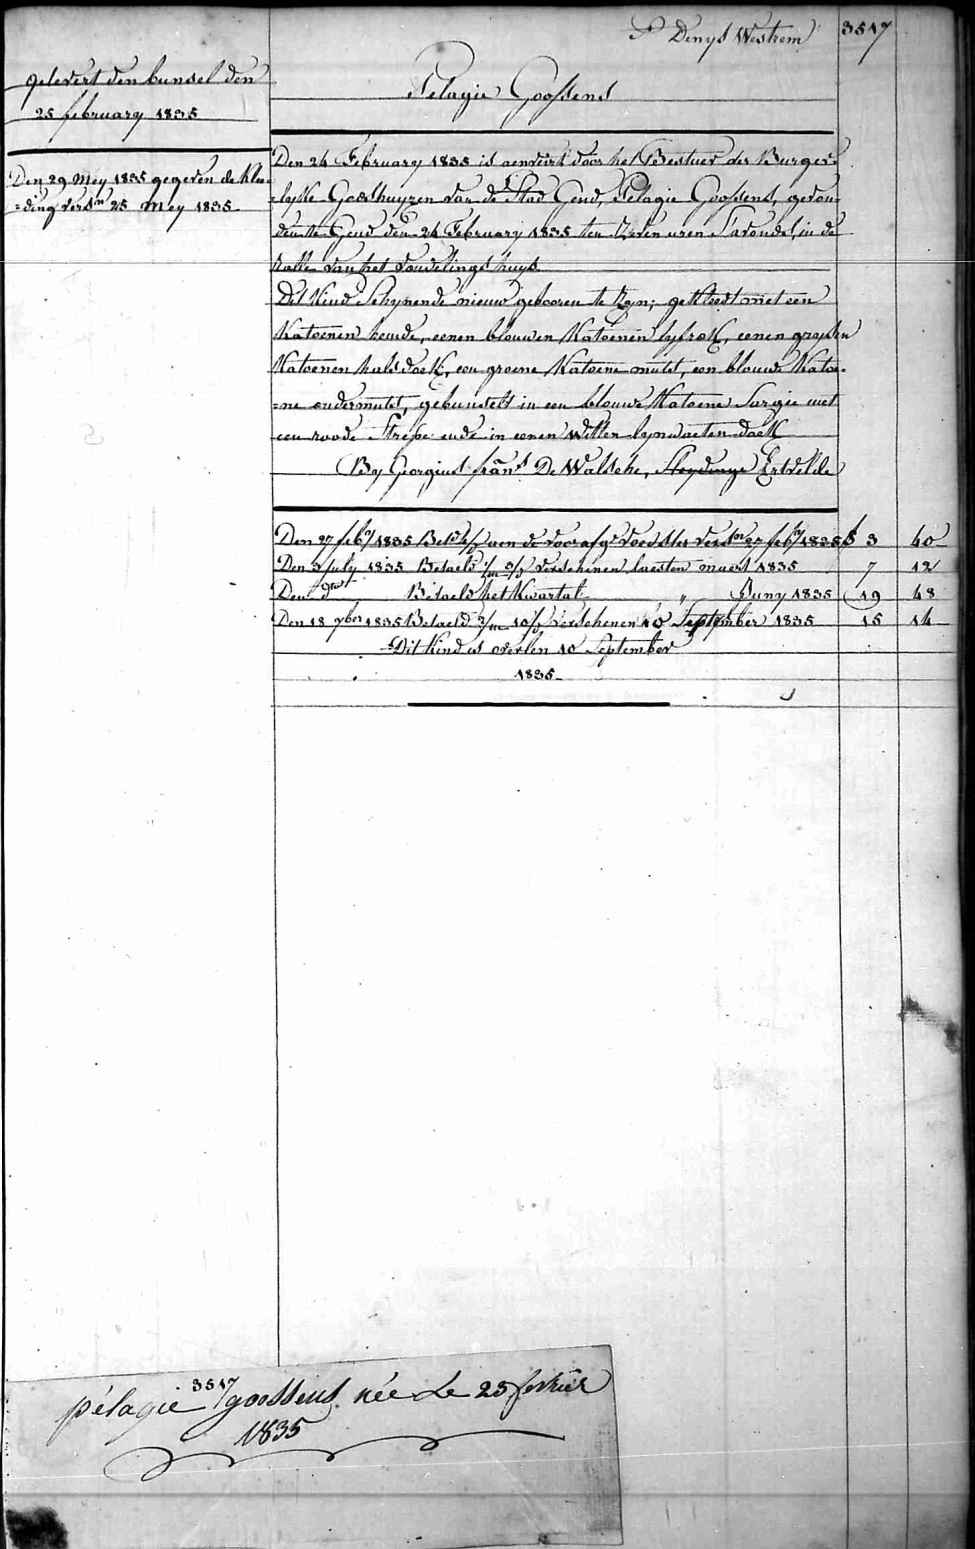 St Denys Westrem 3517
gelevert den bunsel den
25 february 1835
Pelagie Goossens
Den 29 Mey 1835 gegeven de klee=
=ding versn 25 Mey 1835
Den 24 February 1835 is aenveirt door het Bestuer der Burger=
=lyke Godshuyzen van de Stad Gend, Pelagie Goossens, gevon
den te Gend den 24 February 1835 ten zeven uren s'avonds, in de
ralle van het vondelings huys
Dit Kind Schynende nieuw gebooren te zyn; gekleed met een
Katoenen hemde, eenen blouwen Katoenen lyfrok, eenen gryssen
Katoenen halsdoek, een groene Katoene mutst, een blouwe Katoe=
=ne ondermutst, gebunselt in een blouwe Katoene Sargie met
een roode Strepe ende in eenen Witten lynwaeten doek
By Georgius frans De Walsche, Sleydinge Ertvelde
Den 27 feby 1835 Betd aen de voorafge voedster versn 27 feby 1835 f 3 40
Den 3 July 1835 Betaeld 1/m 3/d verschenen laesten maert 1835 7 12
Den dto Betaeld het Kwartal " Juny 1835 19 48
Den 18 7ber 1835 Betaeld 2/m 10/d verschenen 10 September 1835 15 14
Dit Kind is overlen 10 September
1835
3517
pélagie goossens née Le 23 fevrier
1835